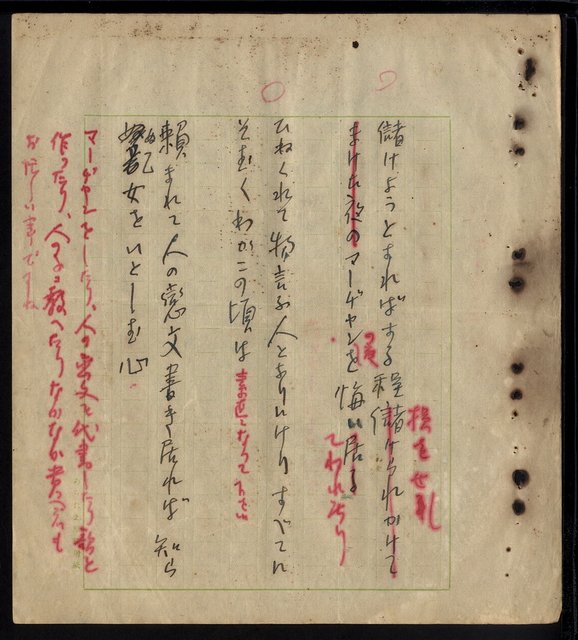 儲けようとすればする程儲けられかけて
損をせし
まけた夜のマーヂヤンを悔い居る
夜
てわれは
ひねくれて物言ふ人となりにけりすべてに
そむくわがこの頃は
素直になつて下さい
頼まれて人の恋文書き居れば知ら
女をいとしむ心
マーヂヤンをしたり、人の恋文を代書したり歌を
作つたり、人の子に教へたりなかなか貴君も
お忙しい事ですね